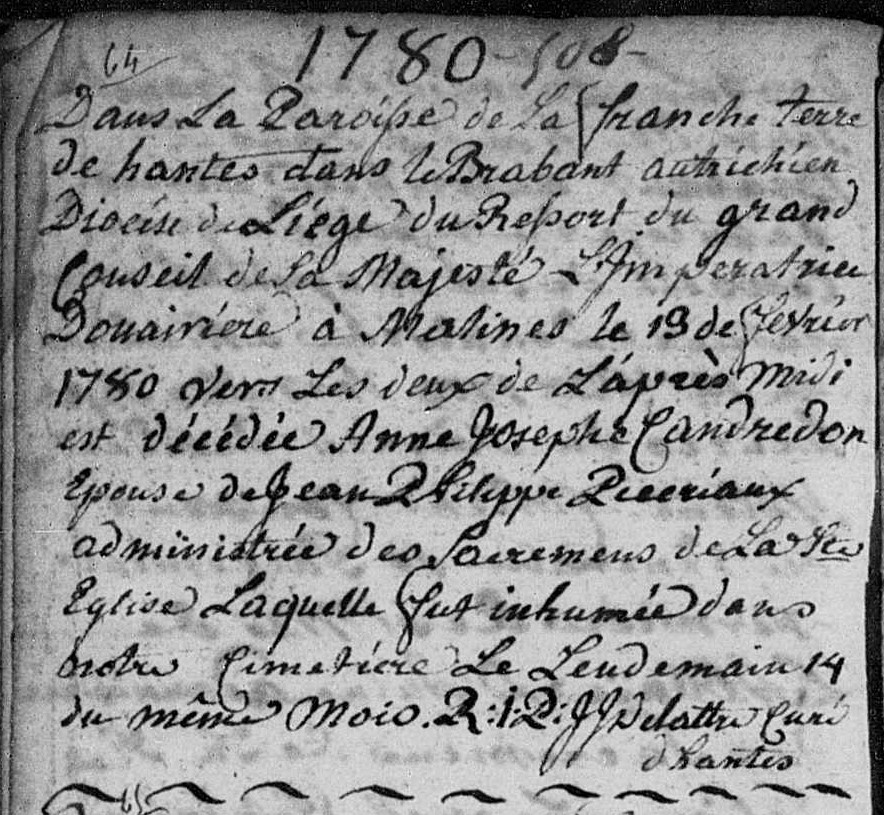 64 1780 - 508 -
Dans La Paroisse de La franche terre
de hantes dans le Brabant autrichien
Diocese de Liége du Ressort du grand
Conseil de Sa Majesté L'Imperatrice
Douairiere à Malines le 13 de février
1780 vers Les deux de L'áprès midi
est décédée Anne Josephe Candredon
Epouse de Jean Philippe Piecriaux
administrée des Sacremens de La Ste
Eglise Laquelle fut inhumée dans
notre Cimetiére Le Lendemain 14
du même Mois. R:i:P: JJ Delattre Curé
d'hantes